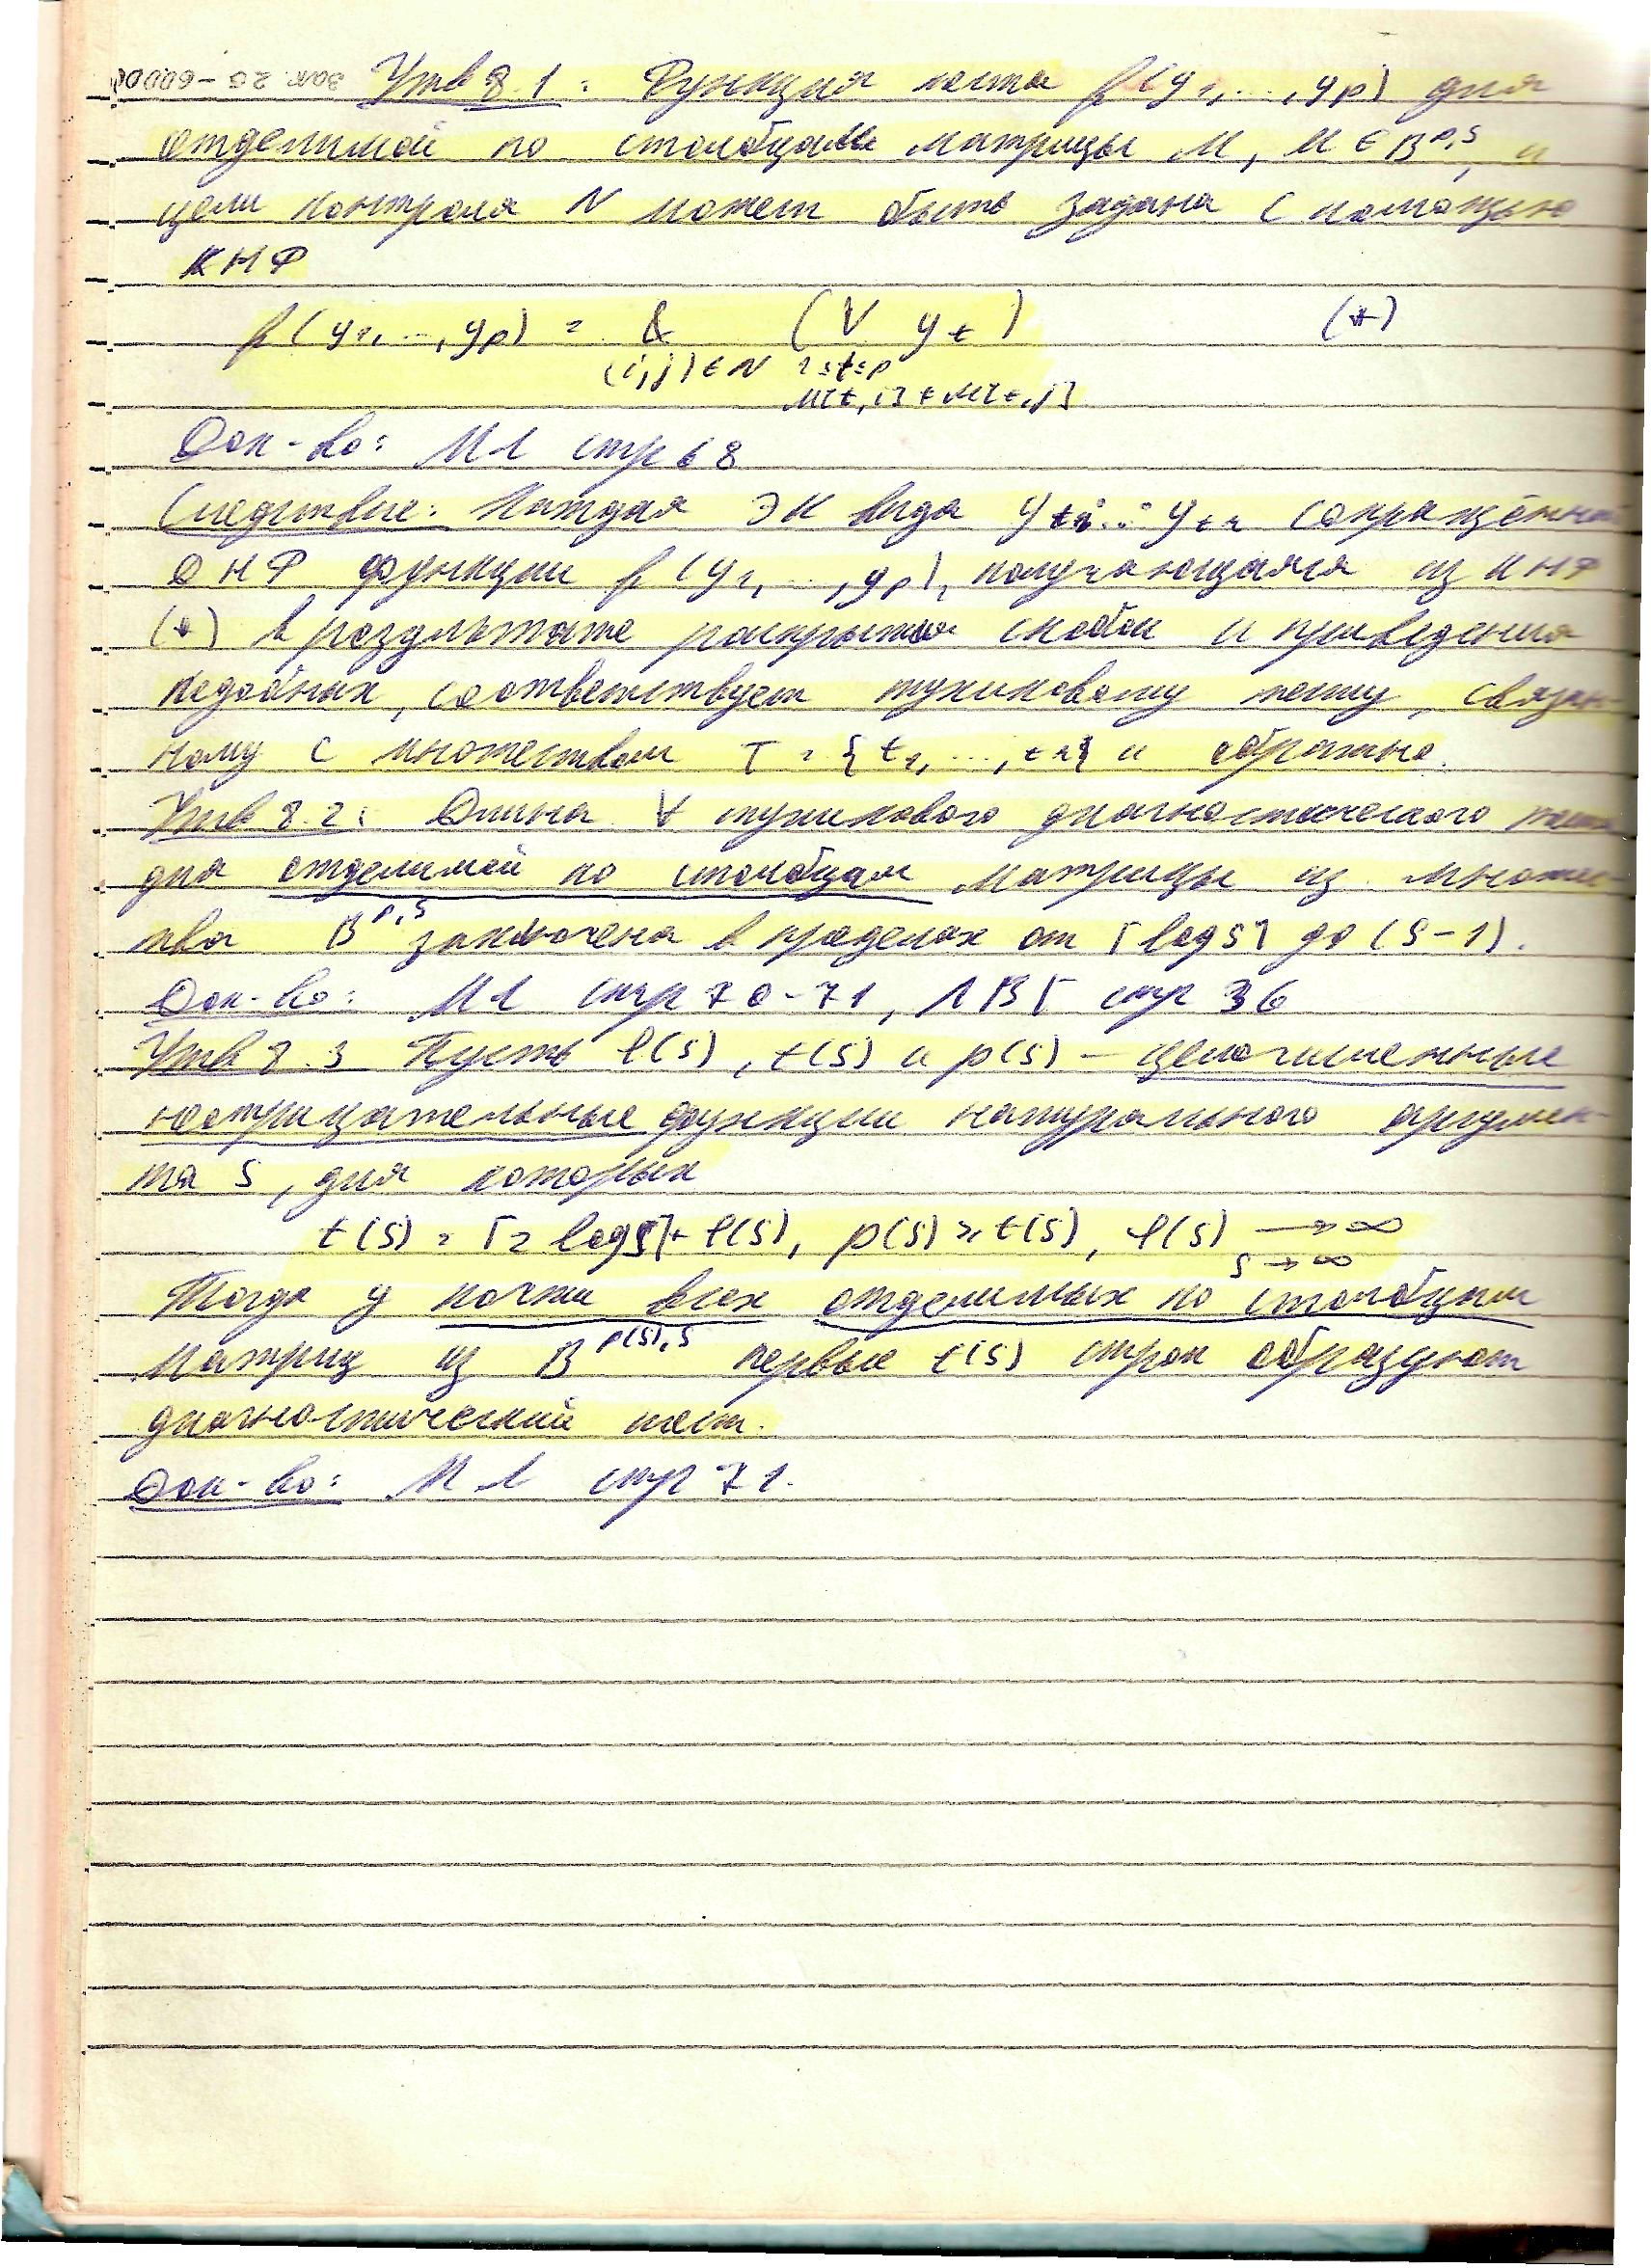 Утв 8.1: Функция теста f(y₁,...,yₚ) для
отделимой по столбцам матрицы M, M ∈ B^{p,s}, и
цели контроля N может быть задана с помощью
КНФ
f(y₁,...,yₚ) = & (V yₜ) (*)
(i,j)∈N 1≤t≤p
M[t,i]≠M[t,j]
Док-во: МЛ стр 68
Следствие: Каждая ЭК вида y_{t₁}...y_{tᵣ} сокращённой
ДНФ функции f(y₁,...,yₚ), получающаяся из КНФ
(*) в результате раскрытия скобок и приведения
подобных, соответствует тупиковому тесту, связан-
ному с множеством T = {t₁,...,tᵣ} и обратно.
Утв 8.2: Длина ∀ тупикового диагностического теста
для отделимой по столбцам матрицы из множес-
тва B^{p,s} заключена в пределах от ⌈log s⌉ до (s-1).
Док-во: МЛ стр 70-71, ЛВГ стр 36
Утв 8.3 Пусть φ(s), t(s) и p(s) — целочисленные
неотрицательные функции натурального аргумен-
та s, для которых
t(s) = ⌈2 log s⌉ + φ(s), p(s) ≥ t(s), φ(s) → ∞
s → ∞
Тогда у почти всех отделимых по столбцам
матриц из B^{p(s),s} первые t(s) строк образуют
диагностический тест.
Док-во: МЛ стр 71.
зак. 25-6000